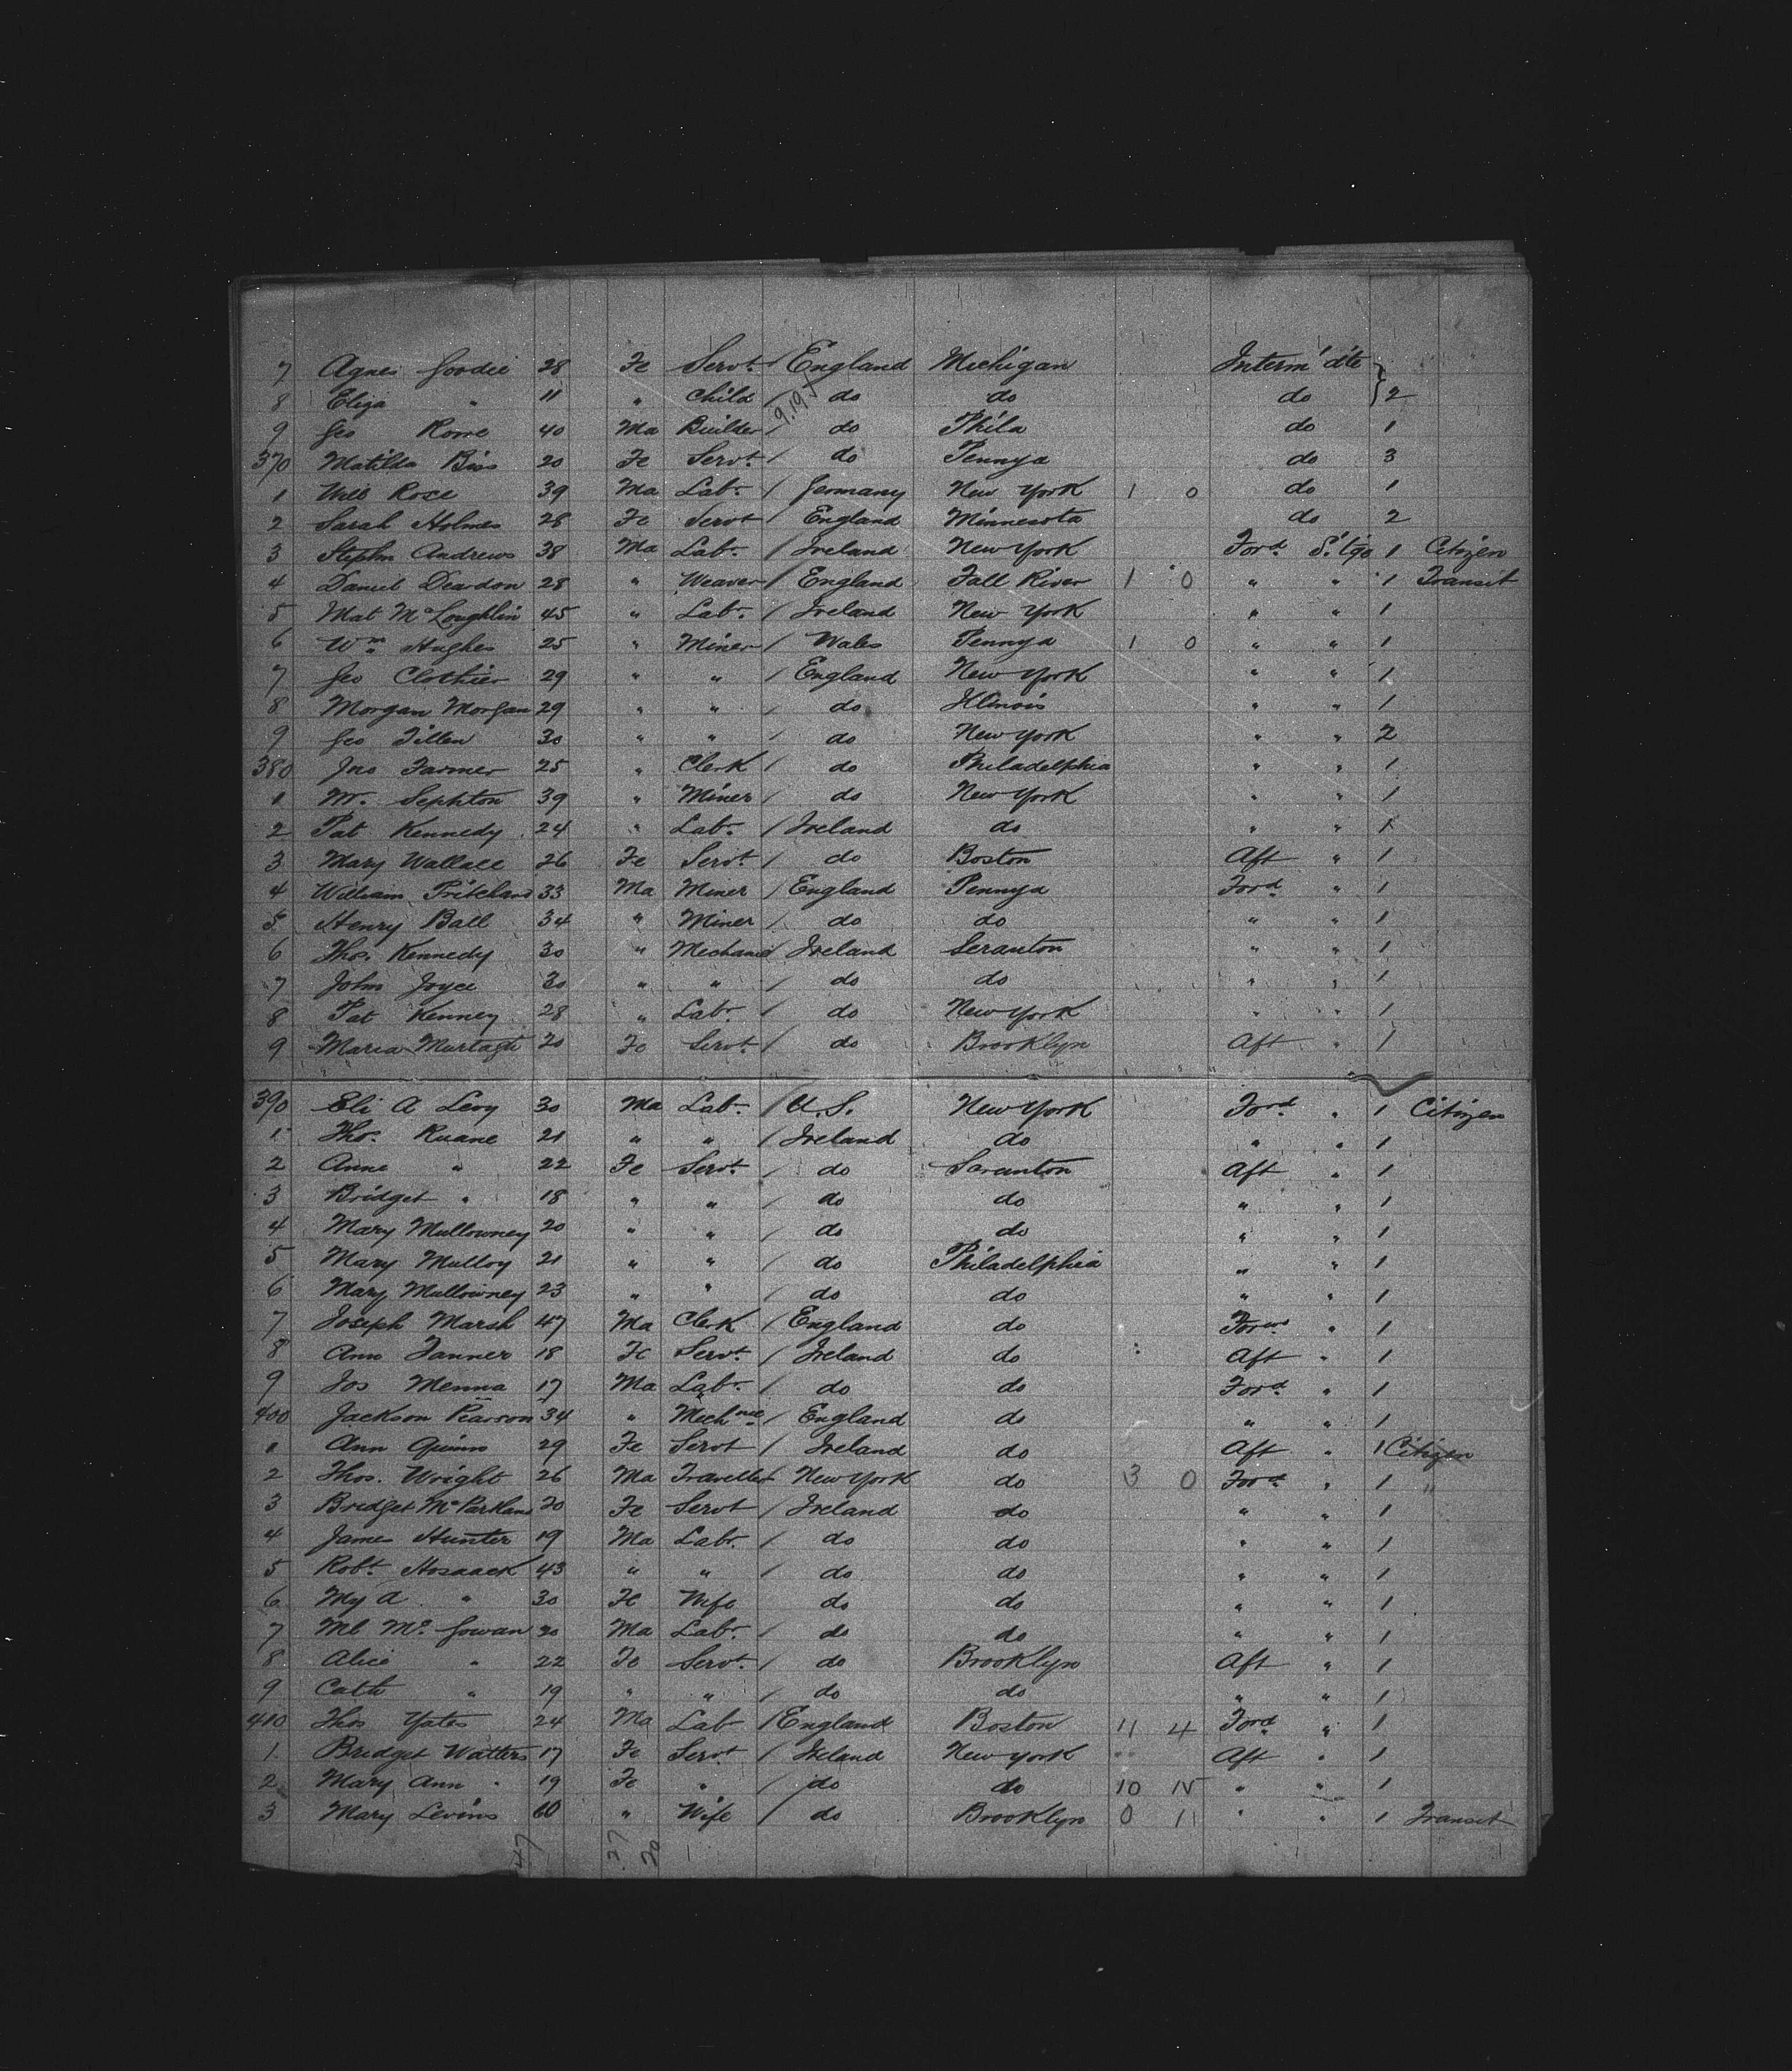 7 Agnes Goodie 28 Fe Servt / England Michigan Interm'd'te
8 Eliza " 11 " Child / do do do } 2
9 Geo Rowe 40 Ma Builder / do Phila do 1
370 Matilda Biss 20 Fe Servt / do Pennya do 3
1 Rose 39 Ma Labr / Germany New York 1 0 do 1
2 Sarah Holmes 28 Fe Servt / England Minnesota do 2
3 Stephn Andrews 38 Ma Labr / Ireland New York Ford S'tge 1 Citizen
4 Daniel Deardon 28 " Weaver / England Fall River 1 0 " " 1 Transit
5 Mat McLoughlin 45 " Labr / Ireland New York " " 1
6 Wm Hughes 25 " Miner / Wales Pennya 1 0 " " 1
7 Geo Clothier 29 " " / England New York " " 1
8 Morgan Morgan 29 " " / do Illinois " " 1
9 Geo Tillen 30 " " / do New York " " 2
380 Jno Farmer 25 " Clerk / do Philadelphia " " 1
1 W. Sephton 39 " Miner / do New York " " 1
2 Pat Kennedy 24 " Labr / Ireland do " " 1
3 Mary Wallace 26 Fe Servt / do Boston Aft " 1
4 William Pritchard 33 Ma Miner / England Pennya Ford " 1
5 Henry Ball 34 " Miner / do do " " 1
6 Thos. Kennedy 30 " Mechanic Ireland Scranton " " 1
7 John Joyce 30 " " / do do " " 1
8 Pat Kenney 28 " Labr / do New York " " 1
9 Maria Murtagh 20 Fe Servt / do Brooklyn Aft " 1
390 Eli A Levy 30 Ma Labr / U.S. New York Ford " 1 Citizen
1 Thos. Ruane 21 " " / Ireland do " " 1
2 Anne " 22 Fe Servt / do Scranton Aft " 1
3 Bridget " 18 " " / do do " " 1
4 Mary Mullowney 20 " " / do do " " 1
5 Mary Mulloy 21 " " / do Philadelphia " " 1
6 Mary Mullowney 23 " " / do do " " 1
7 Joseph Marsh 47 Ma Clerk / England do Forwd " 1
8 Ann Fanner 18 Fe Servt / Ireland do Aft " 1
9 Jos Menna 17 Ma Labr / do do Ford " 1
400 Jackson Pearson 34 " Mechnic / England do " " 1
1 Ann Quinn 29 Fe Servt / Ireland do Aft " 1 Citizen
2 Thos. Wright 26 Ma Traveller New York do 3 0 Ford " 1 "
3 Bridget McParkland 20 Fe Servt / Ireland do " " 1
4 James Hunter 19 Ma Labr / do do " " 1
5 Robt Hosaack 43 " " / do do " " 1
6 My A " 30 Fe Wife do do " " 1
7 Ml McGowan 20 Ma Labr / do do " " 1
8 Alice " 22 Fe Servt / do Brooklyn Aft " 1
9 Cath " 19 " " / do do " " 1
410 Thos Yates 24 Ma Lab / England Boston 11 4 Ford " 1
1 Bridget Watters 17 Fe Servt / Ireland New York Aft " 1
2 Mary Ann " 19 Fe " / do do 10 " " 1
3 Mary Levins 60 " Wife / do Brooklyn 0 11 " " 1 Transit
47 27 20